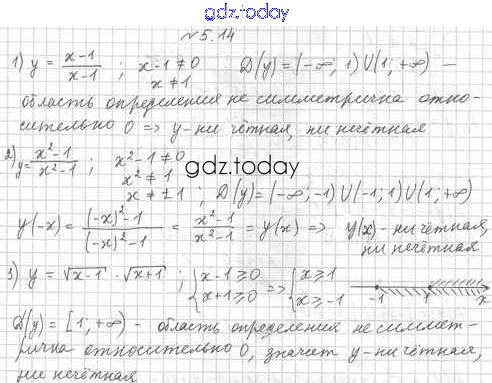 gdz.today
№5.14
1) y = \frac{x-1}{x-1} ; x-1≠0 D(y)=(-∞; 1)∪(1; +∞) –
x≠1
область определения не симметрична отно-
сительно 0 => y-ни чётная, ни нечётная
gdz.today
2) y = \frac{x²-1}{x²-1} ; x²-1≠0
x²≠1
x≠±1 ; D(y)=(-∞; -1)∪(-1; 1)∪(1; +∞)
y(-x) = \frac{(-x)²-1}{(-x)²-1} = \frac{x²-1}{x²-1} = y(x) => y(x) - ни чётная,
ни нечётная
3) y = √x-1 · √x+1 ; { x-1≥0 => { x≥1
x+1≥0 x≥-1 -1 1 x
D(y) = [1; +∞) - область определения не симмет-
рична относительно 0, значит y-ни чётная,
ни нечётная